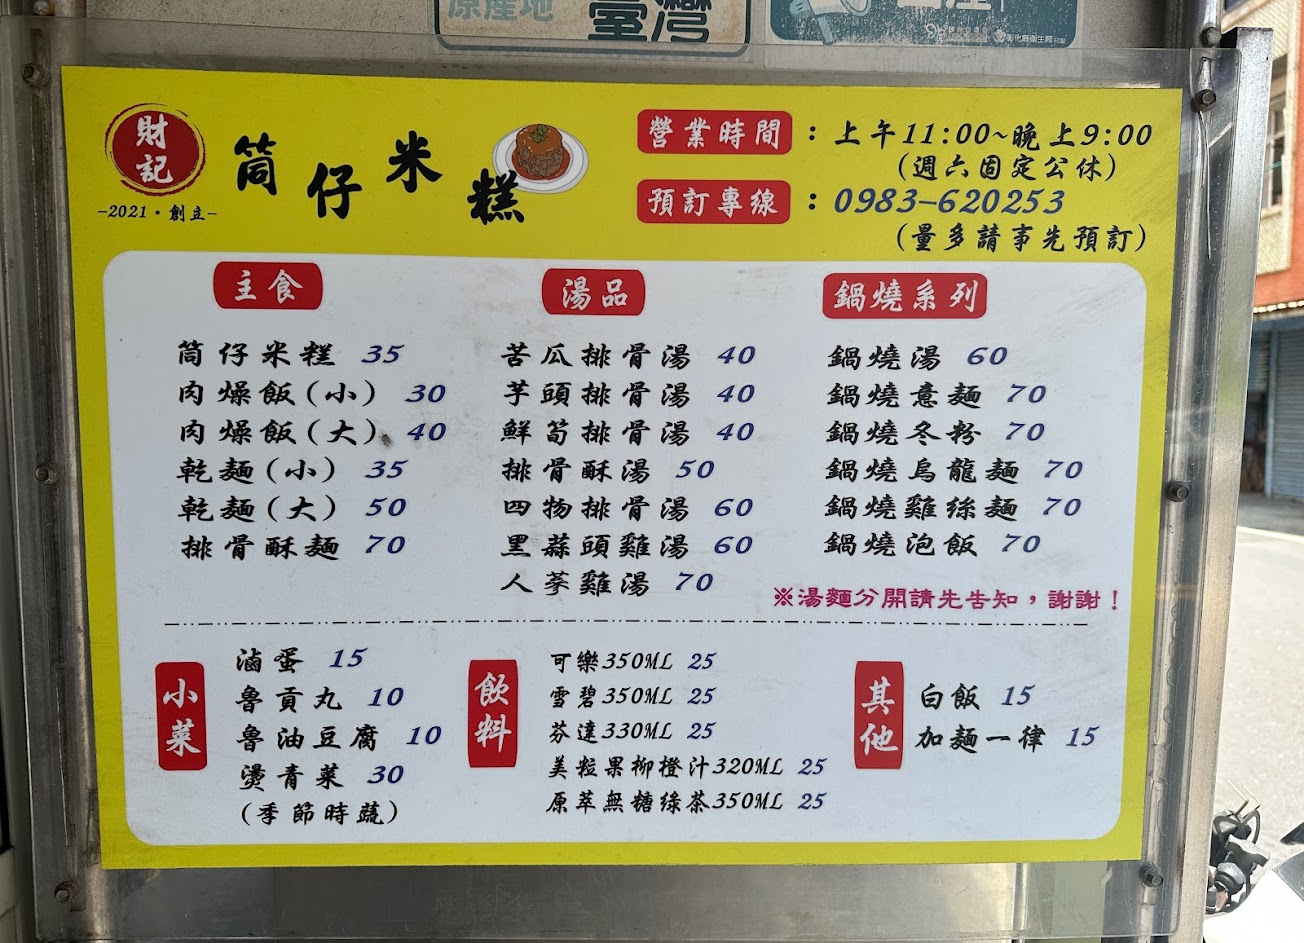 原產地
臺灣
彰化縣衛生局
財記
-2021·創立-
筒仔米糕
營業時間：上午11:00~晚上9:00
(週六固定公休)
預訂專線：0983-620253
(量多請事先預訂)
主食
筒仔米糕 35
肉燥飯(小) 30
肉燥飯(大) 40
乾麵(小) 35
乾麵(大) 50
排骨酥麵 70
湯品
苦瓜排骨湯 40
芋頭排骨湯 40
鮮筍排骨湯 40
排骨酥湯 50
四物排骨湯 60
黑蒜頭雞湯 60
人蔘雞湯 70
鍋燒系列
鍋燒湯 60
鍋燒意麵 70
鍋燒冬粉 70
鍋燒烏龍麵 70
鍋燒雞絲麵 70
鍋燒泡飯 70
※湯麵分開請先告知，謝謝！
小菜
滷蛋 15
魯貢丸 10
魯油豆腐 10
燙青菜 30
(季節時蔬)
飲料
可樂350ML 25
雪碧350ML 25
芬達330ML 25
美粒果柳橙汁320ML 25
原萃無糖綠茶350ML 25
其他
白飯 15
加麵一律 15